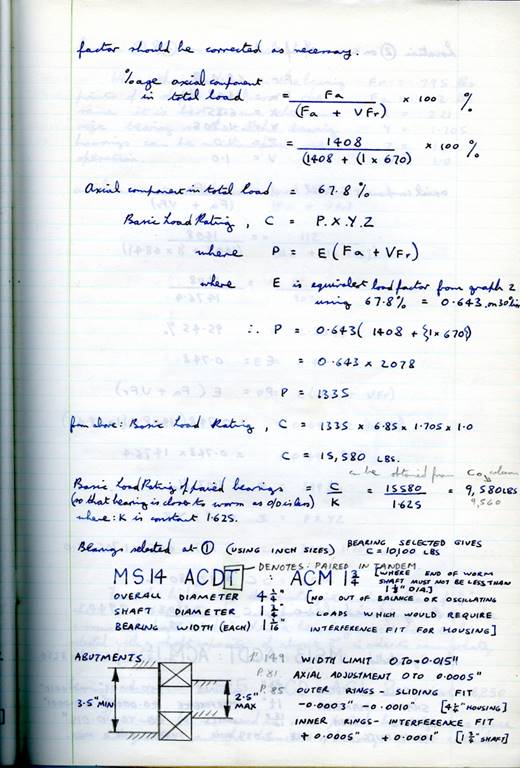 factor should be corrected as necessary.
%age axial component
in total load = Fa / (Fa + VFr) × 100 %
= 1408 / (1408 + (1×670)) × 100 %
Axial component in total load = 67.8 %
Basic Load Rating, C = P.X.Y.Z
where P = E (Fa + VFr)
where E is equivalent load factor from graph 2
using 67.8% = 0.643. on 30°
∴ P = 0.643( 1408 + {1×670})
= 0.643 × 2078
P = 1335
from above: Basic Load Rating, C = 1335 × 6.85 × 1.705 × 1.0
C = 15,580 LBS.
can be obtained from Co, column
Basic Load Rating of paired bearings = C/K = 15580/1.625 = 9,580 LBS
(so that bearing is closer to worm as O/D is less) 9,560
where: K is constant 1.625.
Bearings selected at ① (USING INCH SIZES) BEARING SELECTED GIVES
C = 10,100 LBS
DENOTES: PAIRED IN TANDEM
MS14 ACDT : ACM 1 3/4 [WHERE END OF WORM
SHAFT MUST NOT BE LESS THAN
OVERALL DIAMETER 4 1/4" (NO OUT OF BALANCE OR OSCILLATING
SHAFT DIAMETER 1 3/4" LOADS WHICH WOULD REQUIRE
BEARING WIDTH (EACH) 1 1/16" INTERFERENCE FIT FOR HOUSING]
ABUTMENTS P.149 WIDTH LIMIT 0 TO -0.015"
P.81. AXIAL ADJUSTMENT 0 TO 0.0005"
3.5" MIN 2.5" MAX P.85 OUTER RINGS - SLIDING FIT
-0.0003" -0.0010" [4 1/4" HOUSING]
INNER RINGS - INTERFERENCE FIT
+0.0005" +0.0001" [1 3/4" SHAFT]